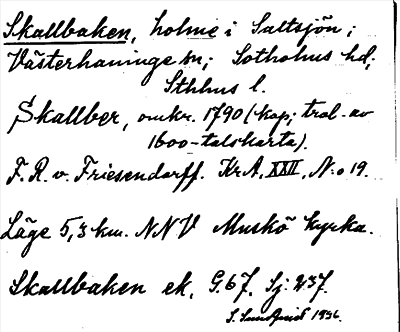 Skallbaken, holme i Saltsjön;
Västerhaninge sn; Sotholms hd;
Sthlms l.
Skallber, omkr. 1790 (kop; trol. av
1600-talskarta).
F. R. v. Friesendorff. KrA, XXII, N:o 19.
Läge 5,3 km. NNV Muskö kyrka.
Skallbaken ek. G.67. Sj: 237.
1936.